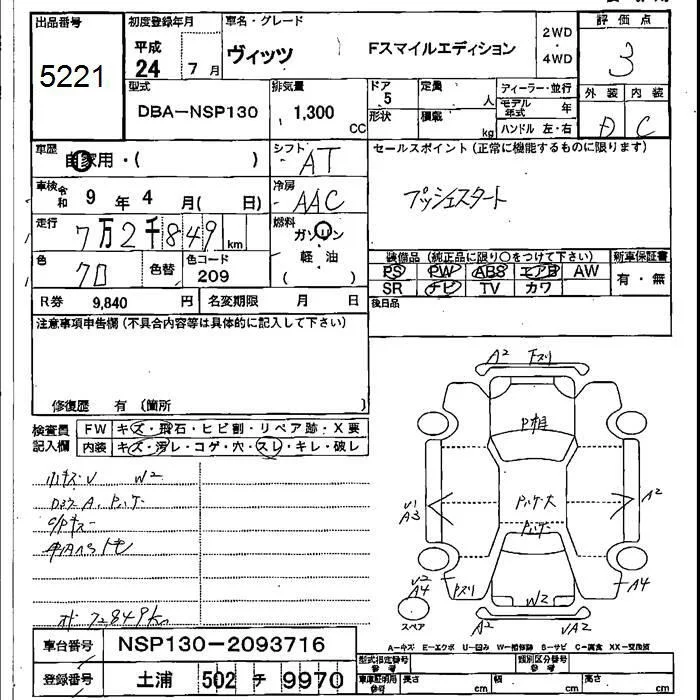 出品番号 初度登録年月 車名・グレード 2WD・4WD 評価点
5221 平成 24 7月 ヴィッツ Fスマイルエディション 3
型式 排気量 ドア 定員 ディーラー・並行 外装 内装
DBA-NSP130 1,300 CC 5 人 モデル年式 年 D C
形状 積載 kg ハンドル 左・右
車歴 自家用・( ) シフト AT セールスポイント(正常に機能するものに限ります)
車検 令和 9年 4月( 日) 冷房 AAC プッシュスタート
走行 7万2千849 km 燃料 ガソリン
軽油
( )
色 クロ 色替 色コード 209
装備品(純正品に限り〇をつけて下さい) 新車保証書
PS PW ABS エアB AW 有・無
SR ナビ TV カワ
R券 9,840 円 名変期限 月 日 後日品
注意事項申告欄(不具合内容等は具体的に記入して下さい)
修復歴 有(箇所
検査員記入欄 FW キズ・飛石・ヒビ割・リペア跡・X要
内装 キズ・汚レ・コゲ・穴・スレ・キレ・破レ
小キズV W2
A2 Fスリ
A2
V1
A3
V2
A4
A4
W2
A2 VA2
スペア
A-キズ E-エクボ U-凹み W-補修跡 S-サビ C-腐食 XX-交換済
72849km
車台番号 NSP130-2093716
型式指定番号 参考 類別区分番号 参考
登録番号 土浦 502 チ 9970
車庫証明用 参考 長さ cm 幅 cm 高さ cm